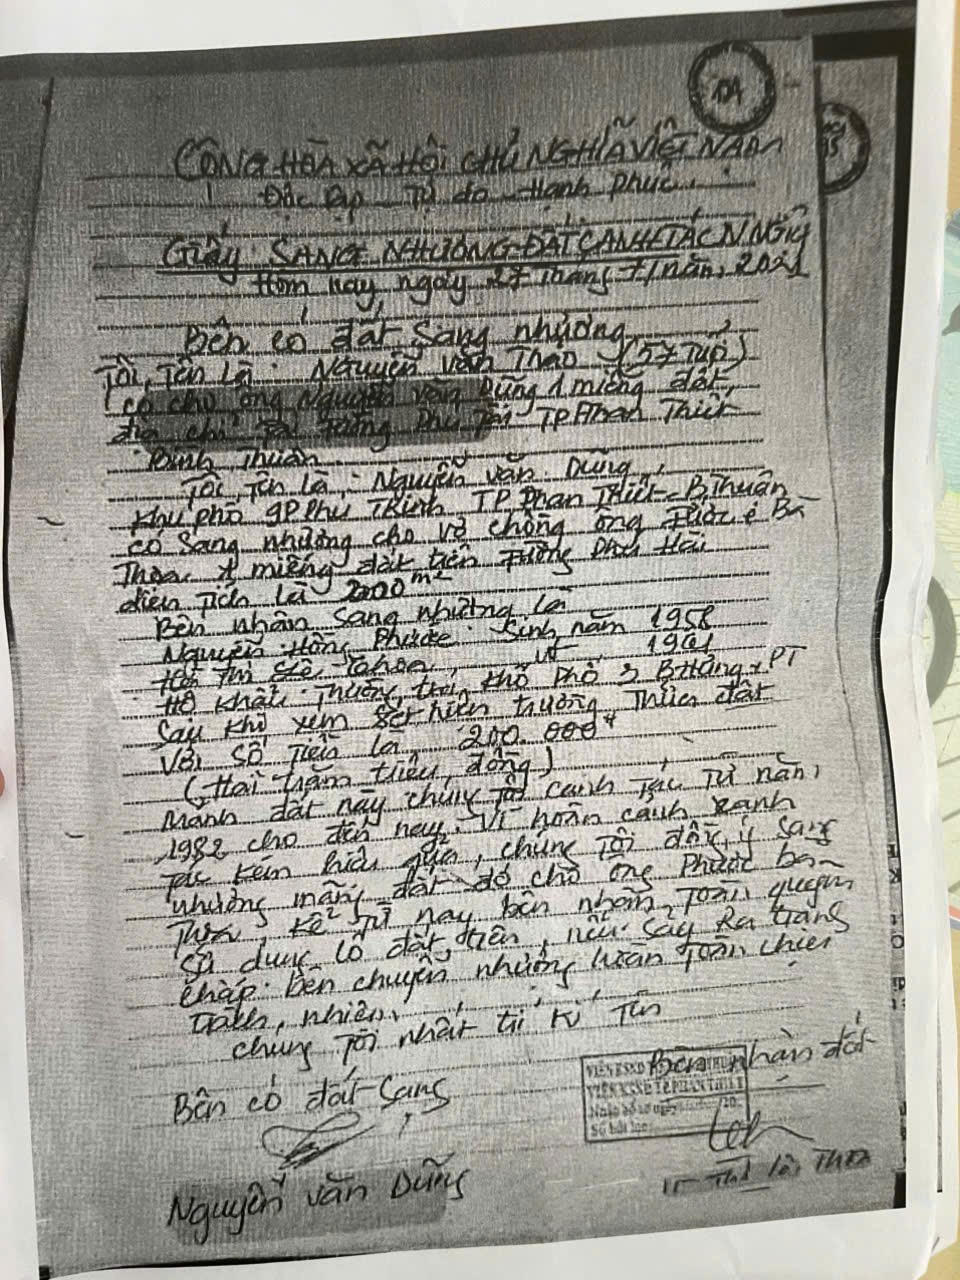 CỘNG HÒA XÃ HỘI CHỦ NGHĨA VIỆT NAM
Độc lập Tự do Hạnh phúc
Giấy SANG NHƯỢNG ĐẤT CANH TÁC N NGIỆ
Hôm nay, ngày 27 tháng 7 năm, 2021
Bên có đất Sang nhượng
Tôi, Tên Là: Nguyễn Văn Thao (57 Tuổi)
có cho ông Nguyễn Văn Dũng 1 miếng đất,
địa chỉ Tại TP Phan Thiết
Bình Thuận
Tôi, Tên Là: Nguyễn Văn Dũng,
Khu phố 9 P Phú Trinh, TP Phan Thiết - B.Thuận
có Sang nhượng cho vợ chồng ông Bà
Thoa 1 miếng đất trên Đường Phú Hài
diện Tích Là m²
Bên nhân Sang nhượng là
Nguyễn Hồng Phước Sinh năm 1958
Thị
Hộ Khẩu Thường trú, khố phố 3 B Hưng, PT
Sau khi xem sét hiện trường Thửa đất
Với số Tiền là 200.000
(Hai trăm triệu, đồng)
Mảnh đất này chúng Tôi canh Tác Từ năm
1982 cho đến nay. Vì hoàn cảnh kanh
Tác kém hiệu quả, chúng Tôi đồng ý sang
nhượng mãng đất đó cho ông Phước bà
Thoa Kể Từ nay bên nhân Toàn quyền
Sử dụng lô đất trên, nếu Sảy Ra trang
chấp. Bên chuyển nhượng hoàn Toàn chiu
trách, nhiên,
chúng Tôi nhất trí kí Tên
Bên có đất Sang
Bên nhân đất
VIỆN KSND THUẬN
VIỆN KSND TP PHAN THIẾT
Số bút lục
Nguyễn Văn Dũng
Thoa